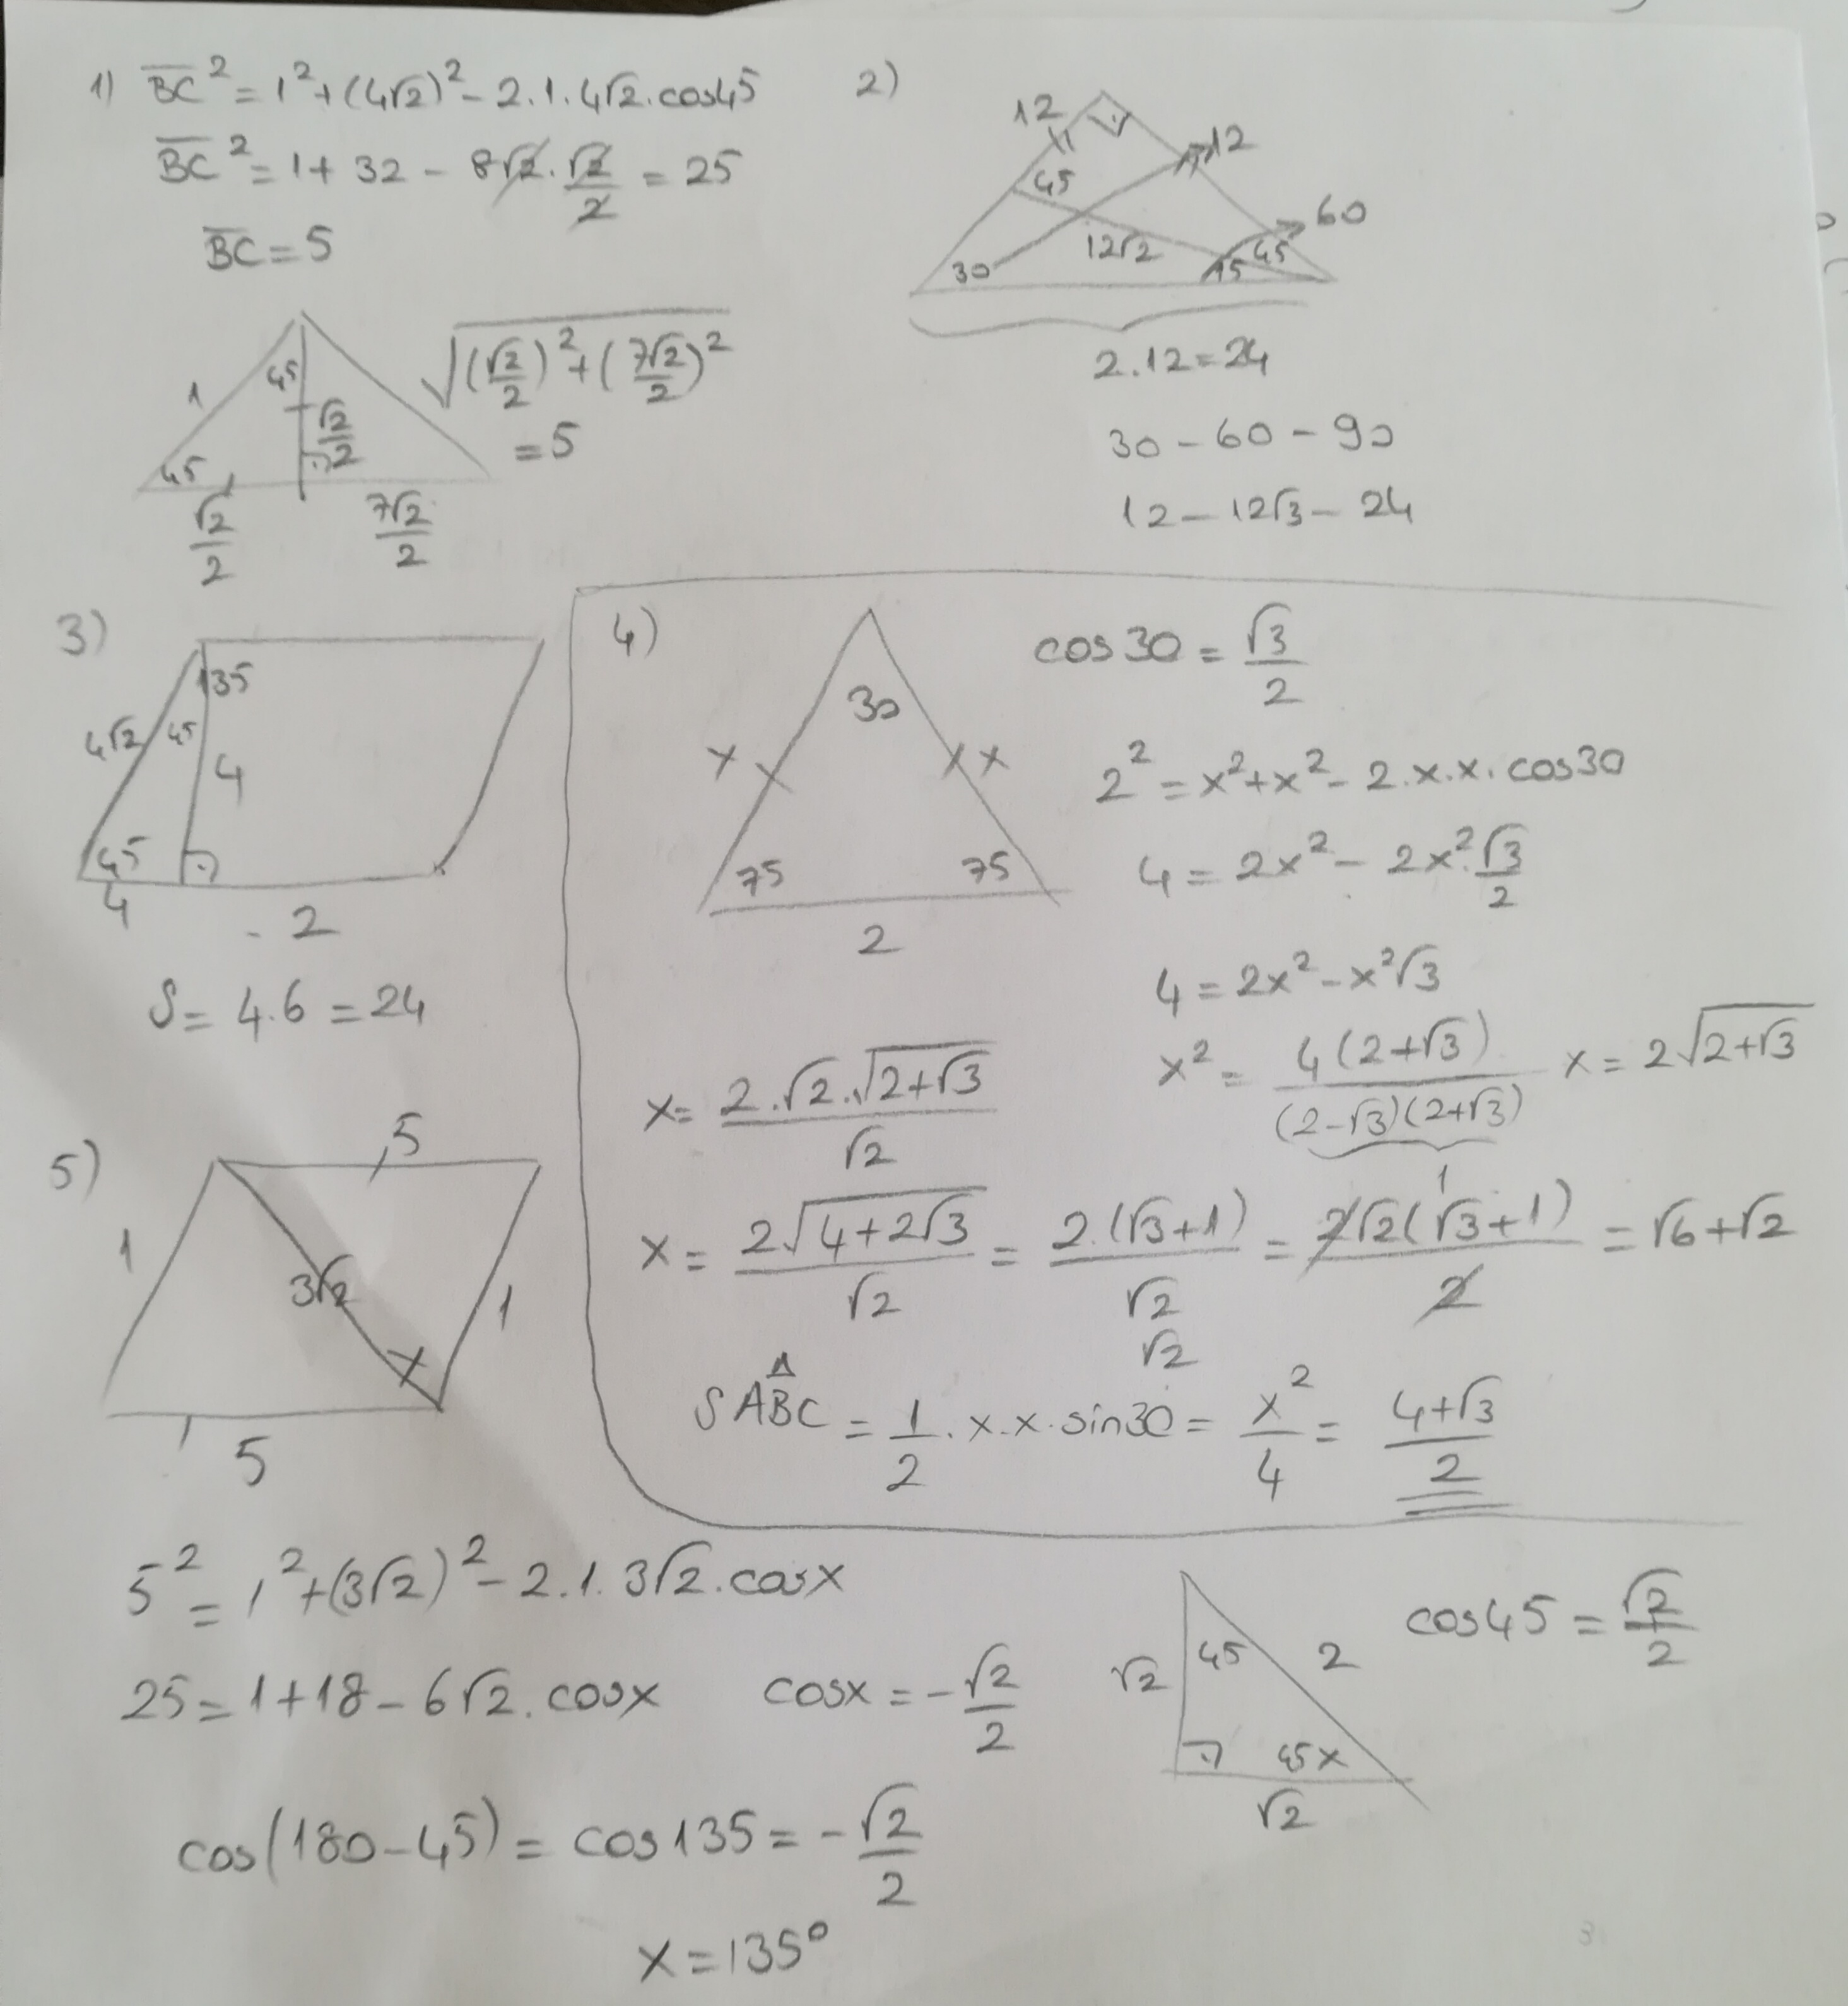 1) BC² = 1² + (4√2)² - 2.1.4√2.cos45
BC² = 1 + 32 - 8√2.√2/2 = 25
BC = 5
1
45
45
√2/2
√2/2
7√2/2
√((√2/2)² + (7√2/2)²)
= 5
2)
12
12
45
60
30
12√2
45
15
2.12=24
30 - 60 - 90
12 - 12√3 - 24
3)
135
4√2
45
4
45
4
2
S = 4.6 = 24
4)
30
x
x
75
75
2
cos30 = √3/2
2² = x² + x² - 2.x.x.cos30
4 = 2x² - 2x².√3/2
4 = 2x² - x²√3
x² = 4(2+√3)/(2-√3)(2+√3) x = 2√(2+√3)
1
x = 2.√2.√(2+√3)/√2
x = 2√(4+2√3)/√2 = 2.(√3+1)/√2 = 2√2(√3+1)/2 = √6+√2
√2
SABC = 1/2.x.x.sin30 = x²/4 = 4+√3/2
5)
5
1
3√2
1
x
5
5² = 1² + (3√2)² - 2.1.3√2.cosx
25 = 1 + 18 - 6√2.cosx cosx = -√2/2
√2
45
2
45 x
√2
cos45 = √2/2
cos(180-45) = cos135 = -√2/2
x = 135°